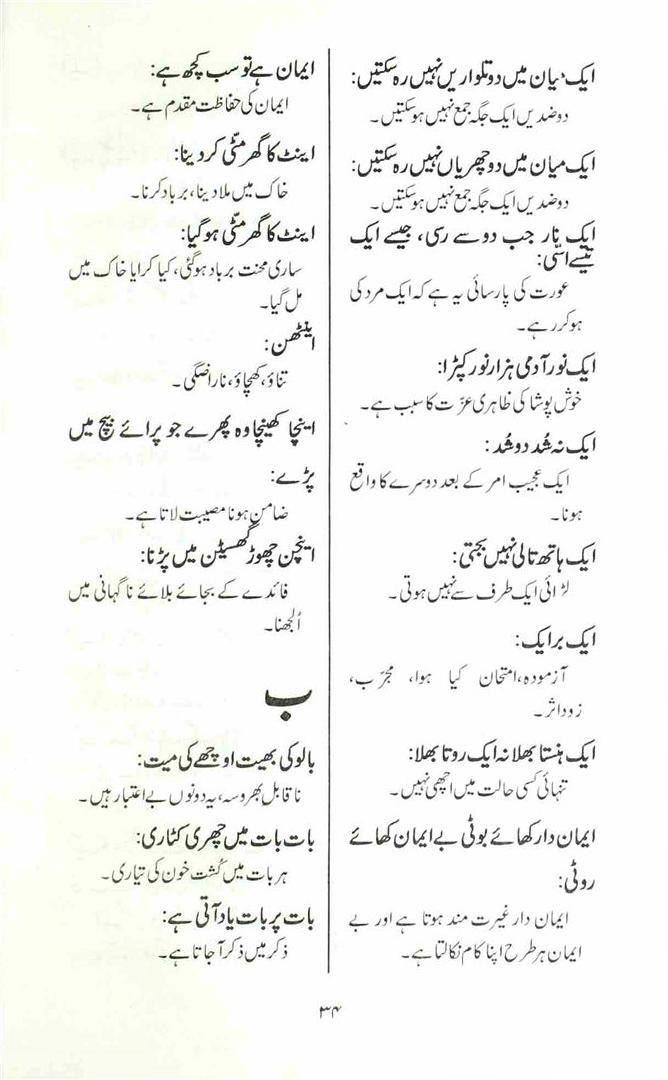 ایک میان میں دو تلواریں نہیں رہ سکتیں:
دو ضدیں ایک جگہ جمع نہیں ہو سکتیں۔
ایک میان میں دو چھریاں نہیں رہ سکتیں:
دو ضدیں ایک جگہ جمع نہیں ہو سکتیں۔
ایک نار جب دو سے رسی، جیسے ایک
تیسے اسّی:
عورت کی پارسائی یہ ہے کہ ایک مرد کی
ہو کر رہے۔
ایک نور آدمی ہزار نور کپڑا:
خوش پوشا کی ظاہری عزّت کا سبب ہے۔
ایک نہ شُد دو شُد:
ایک عجیب امر کے بعد دوسرے کا واقع
ہونا۔
ایک ہاتھ تالی نہیں بجتی:
لڑائی ایک طرف سے نہیں ہوتی۔
ایک بر ایک:
آزمودہ، امتحان کیا ہوا، مجرّب،
زود اثر۔
ایک ہنستا بھلا نہ ایک روتا بھلا:
تنہائی کسی حالت میں اچھی نہیں۔
ایمان دار کھائے بوٹی بے ایمان کھائے
روٹی:
ایمان دار غیرت مند ہوتا ہے اور بے
ایمان ہر طرح اپنا کام نکالتا ہے۔
ایمان ہے تو سب کچھ ہے:
ایمان کی حفاظت مقدم ہے۔
اینٹ کا گھر مٹّی کر دینا:
خاک میں ملا دینا، برباد کرنا۔
اینٹ کا گھر مٹّی ہو گیا:
ساری محنت برباد ہو گئی، کیا کرایا خاک میں
مل گیا۔
اینٹھن:
تناؤ، کھچاؤ، ناراضگی۔
اینچا کھینچا وہ پھرے جو پرائے بیچ میں
پڑے:
ضامن ہونا مصیبت لاتا ہے۔
اینچن چھوڑ گھسیٹن میں پڑنا:
فائدے کے بجائے بلائے ناگہانی میں
اُلجھنا۔
ب
بالو کی بھیت اوچھے کی میت:
ناقابل بھروسہ، یہ دونوں بے اعتبار ہیں۔
بات بات میں چھری کٹاری:
ہر بات میں کُشت خون کی تیاری۔
بات پر بات یاد آتی ہے:
ذکر میں ذکر آ جاتا ہے۔
۳۴